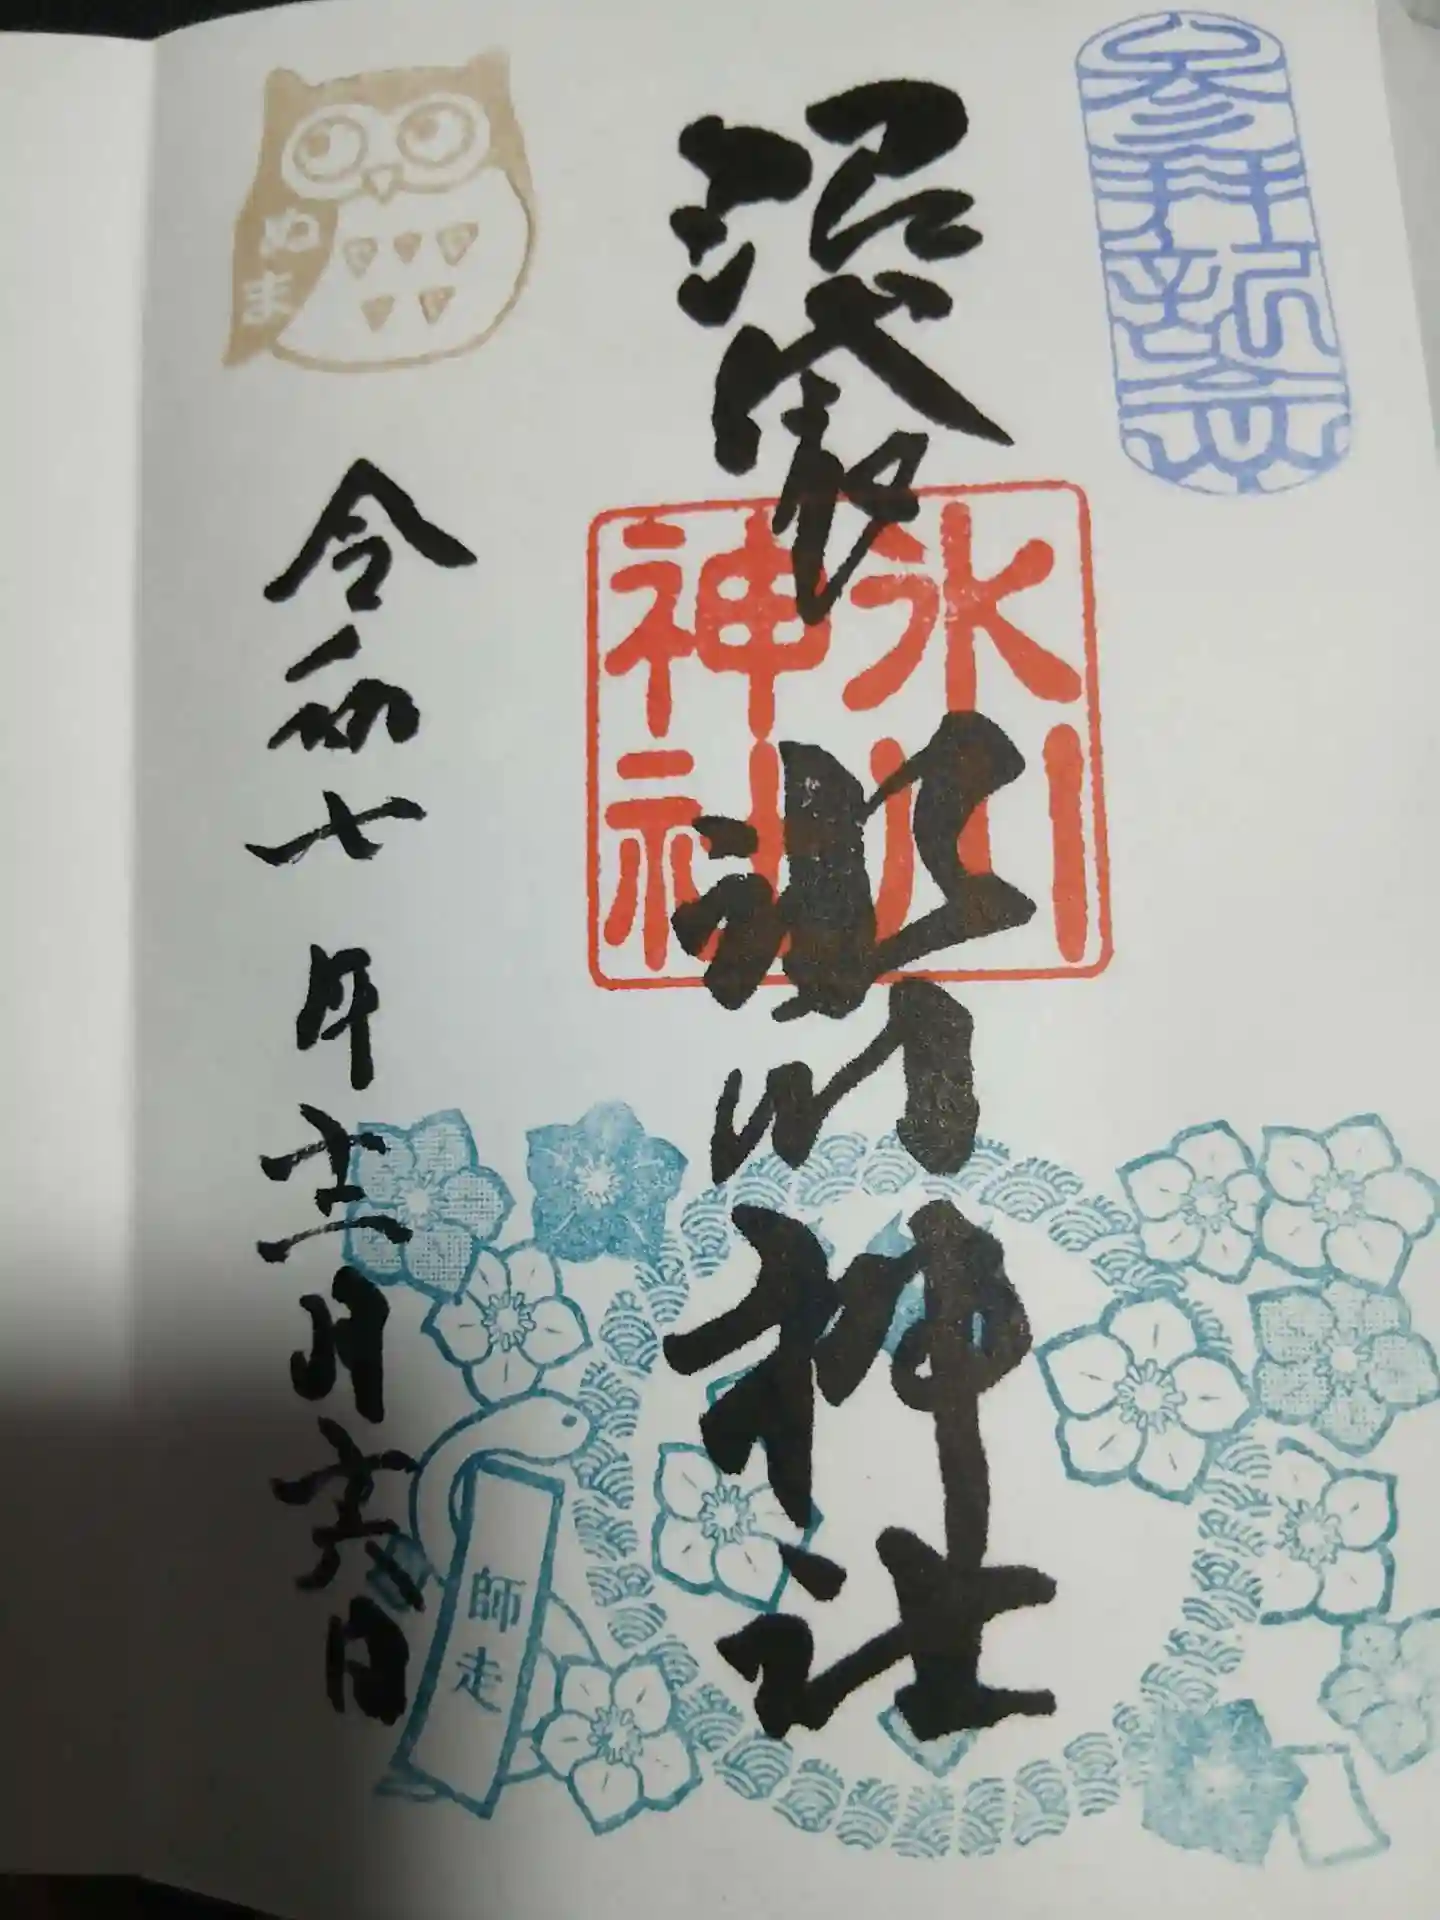 参拝記念
沼袋
氷川神社
氷川
神社
ぬま
令和七年十二月十六日
師走